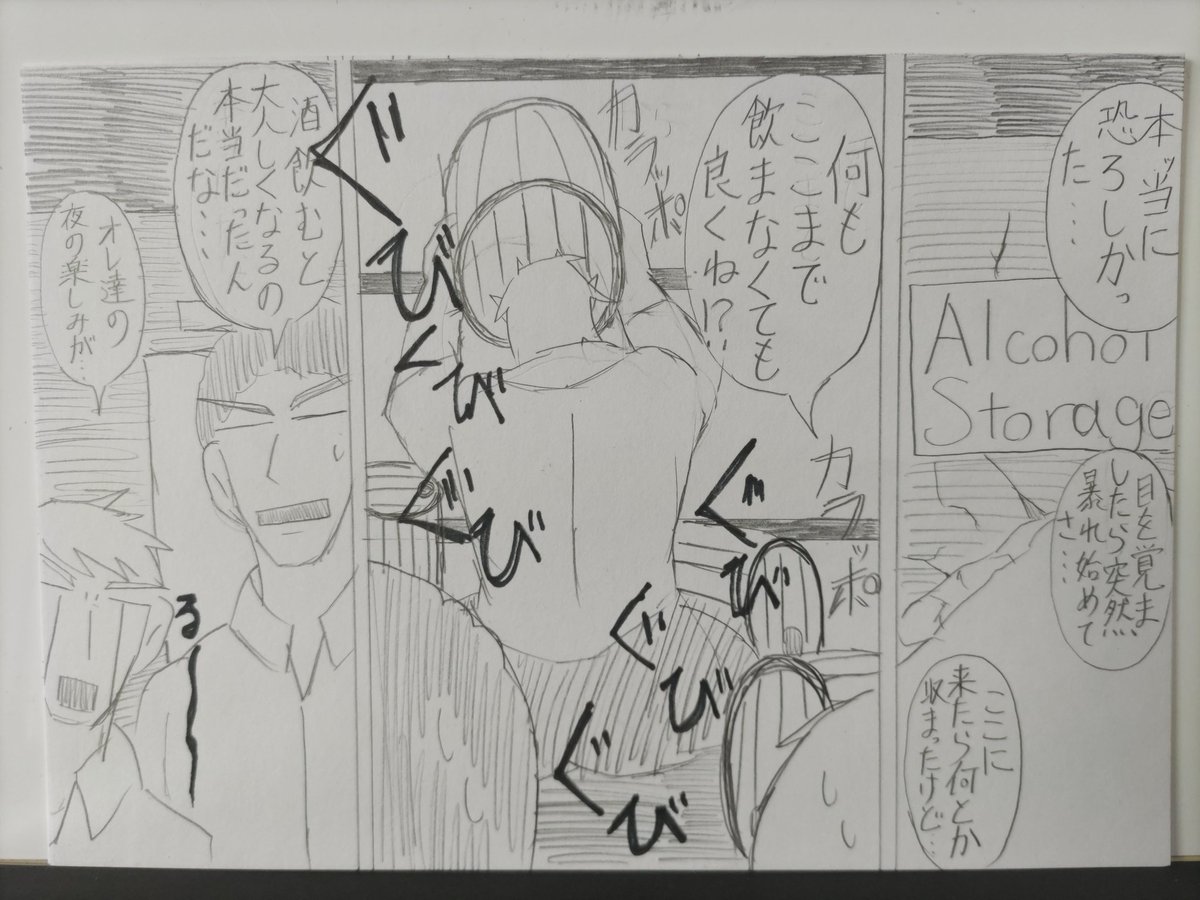 本ッ当に
恐ろしかっ
た…
Alcohol
Storage
目を覚ま
したら突然
暴れ始めて
さ…
ここに
来たら何とか
収まったけど…
何も
ここまで
飲まなくても
良くね!?
カラッポ
カラッポ
ぐび
ぐび
ぐび
ぐび
ぐび
ぐび
酒飲むと
大人しくなるの
本当だったん
だな…
オレ達の
夜の楽しみが…
るー